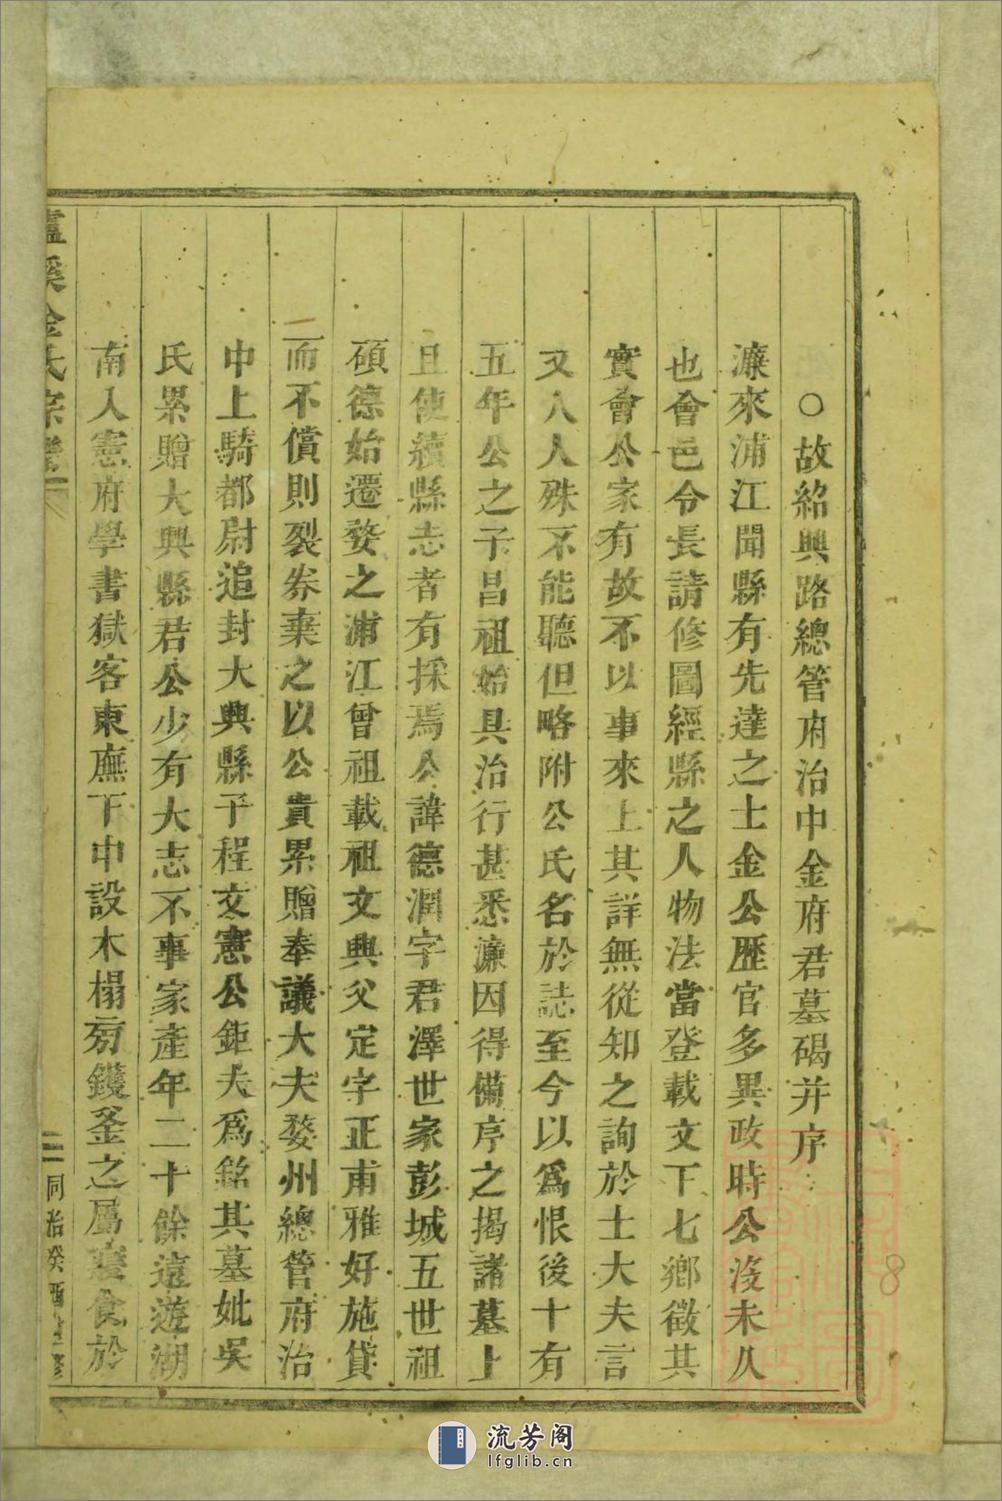 ○故紹興路總管府治中金府君墓碣并序
濂來浦江聞縣有先達之士金公歷官多異政時公沒未久
也會邑令長請修圖經縣之人物法當登載文下七鄉徵其
實會公家有故不以事來上其詳無從知之詢於士大夫言
又人人殊不能聽但略附公氏名於誌至今以為恨後十有
五年公之子昌祖始具治行甚悉濂因得備序之揭諸墓上
且使續縣志者有採焉公諱德潤字君澤世家彭城五世祖
碩德始遷婺之浦江曾祖載祖文興父定字正甫雅好施貸
而不償則裂券棄之以公貴累贈奉議大夫婺州總管府治
中上騎都尉追封大興縣子程文憲公鉅夫為銘其墓妣吳
氏累贈大興縣君公少有大志不事家產年二十餘遠遊湖
南入憲府學書獄客東廡下中設木榻旁鑊釜之屬爨食於
盧溪金氏宗譜
二 同治癸酉重修
8
流芳阁
lfglib.cn